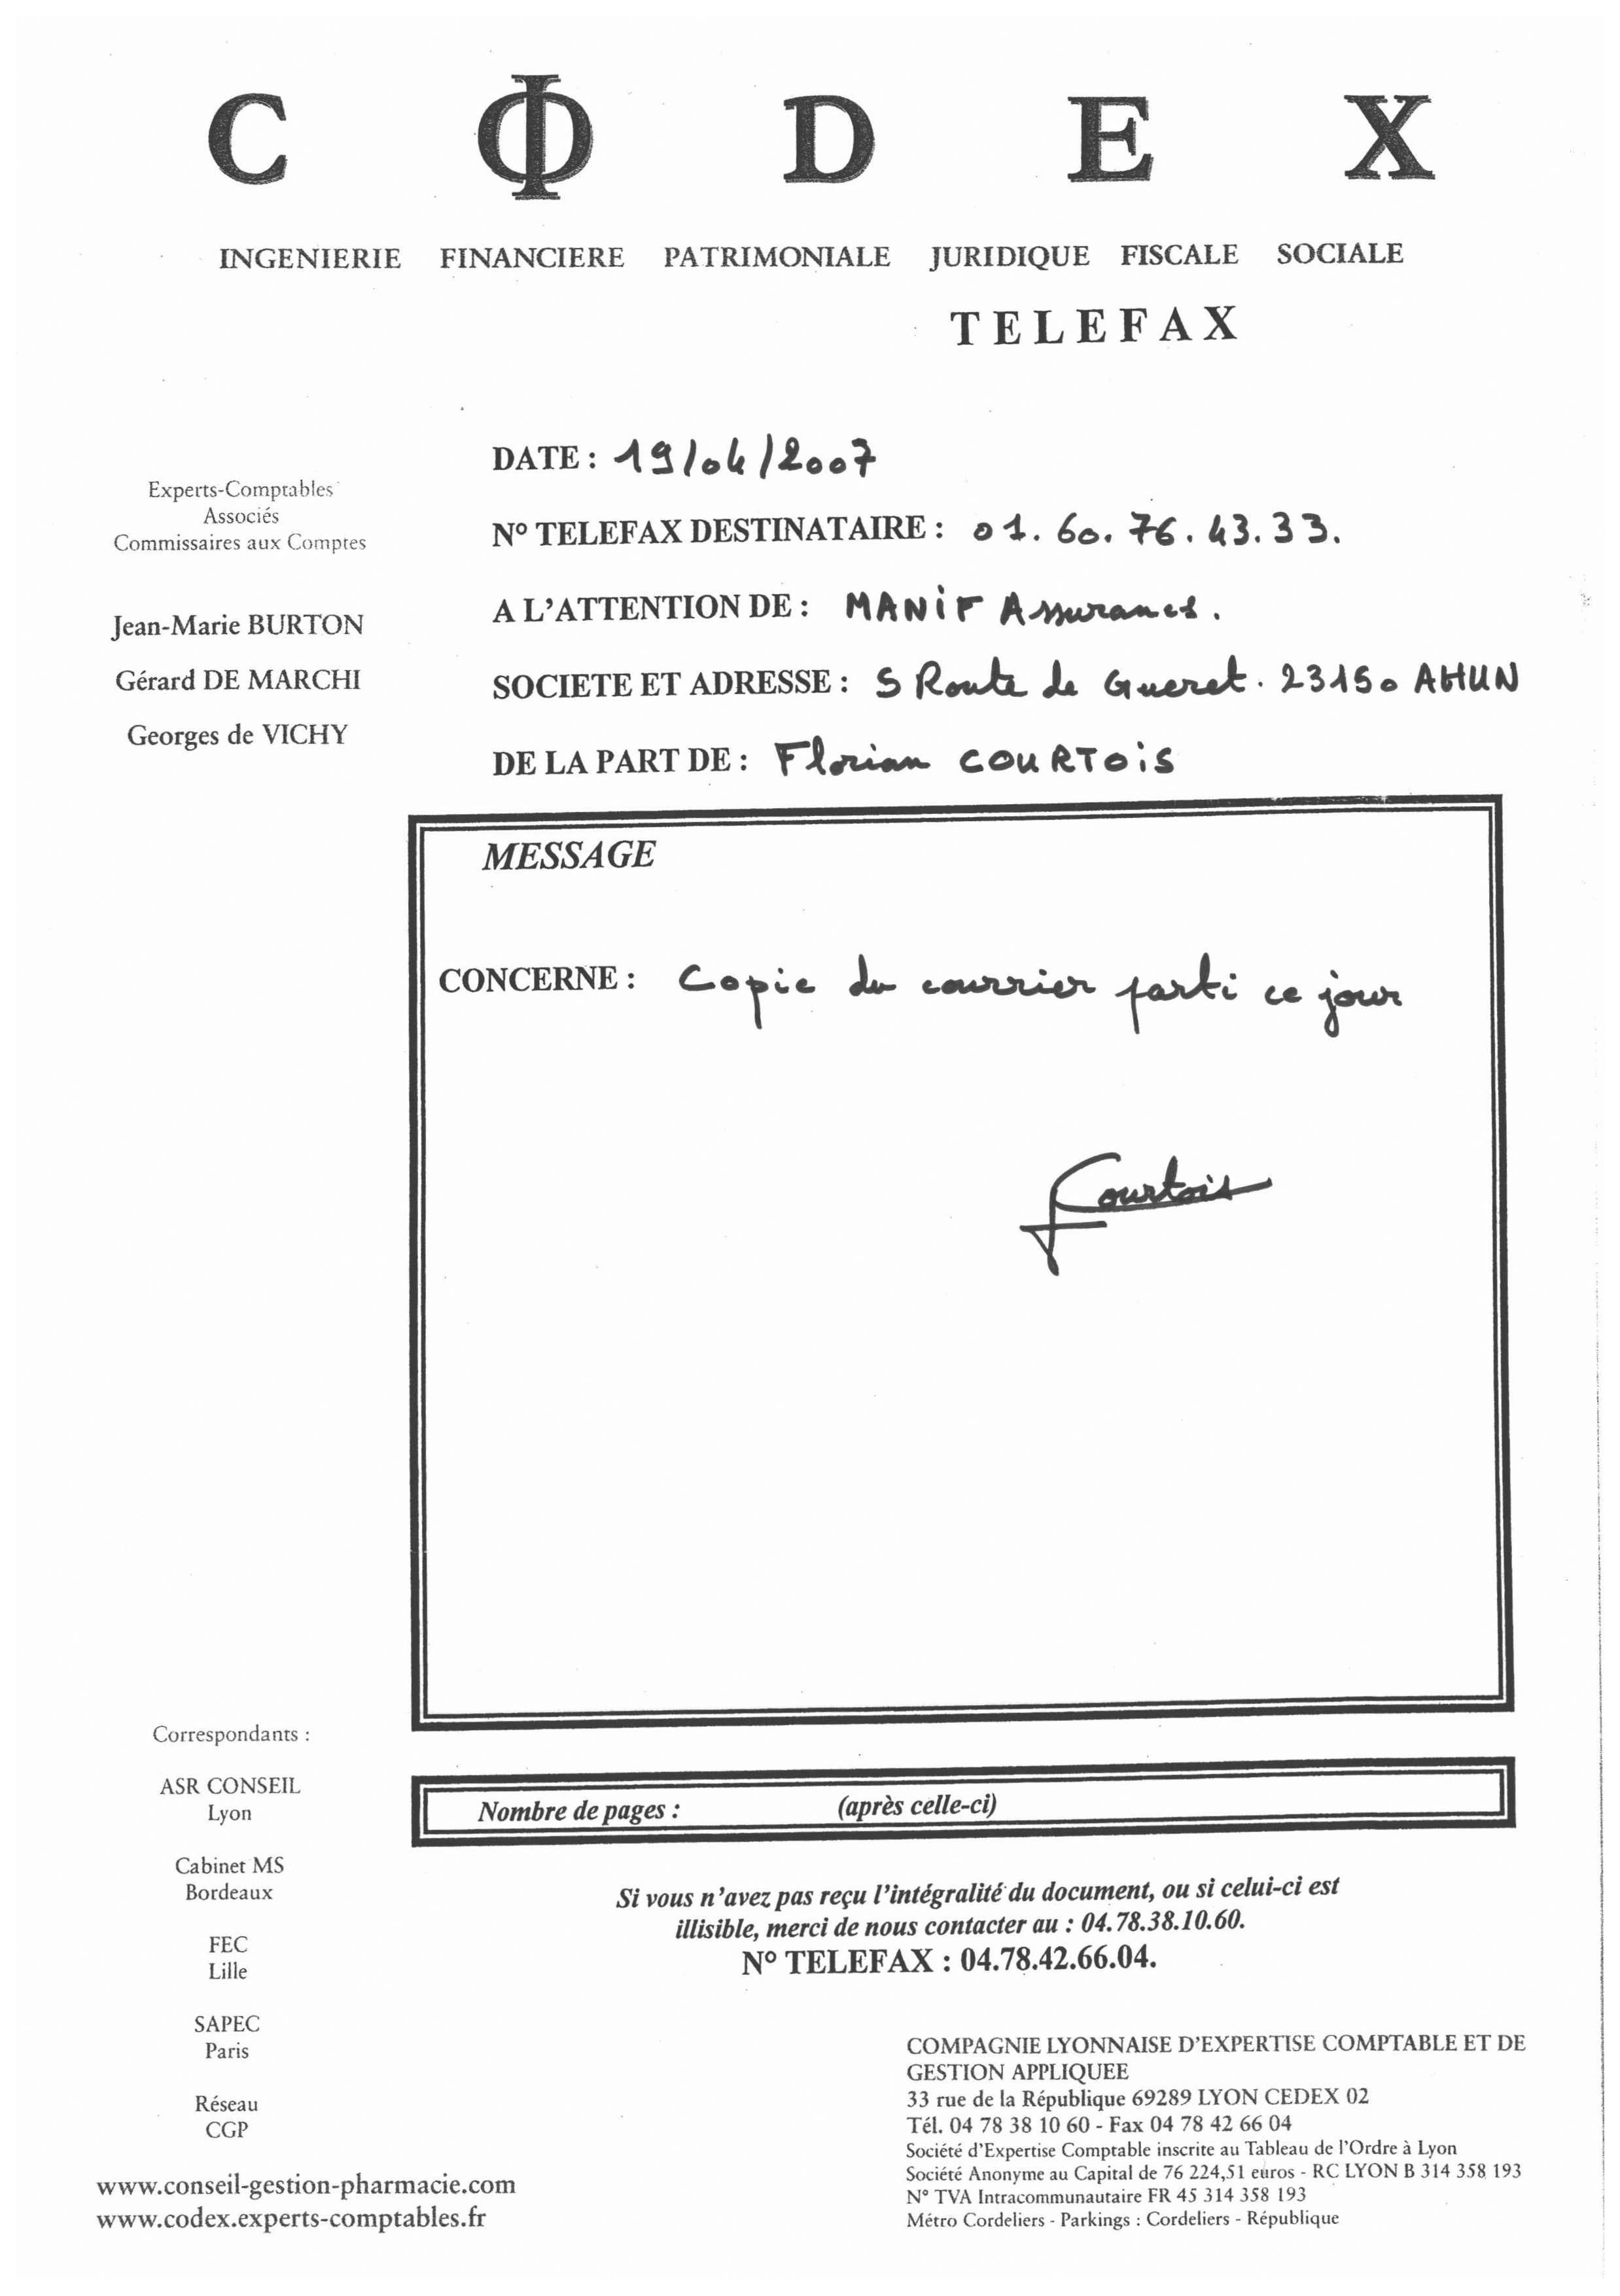 CΦDEX
INGENIERIE FINANCIERE PATRIMONIALE JURIDIQUE FISCALE SOCIALE
TELEFAX
Experts-Comptables
Associés
Commissaires aux Comptes
Jean-Marie BURTON
Gérard DE MARCHI
Georges de VICHY
DATE : 19/04/2007
N° TELEFAX DESTINATAIRE : 01. 60. 76. 43. 33.
A L'ATTENTION DE : MANIF Assurances.
SOCIETE ET ADRESSE : 5 Route de Gueret. 23150 AHUN
DE LA PART DE : Florian COURTOIS
MESSAGE
CONCERNE : Copie du courrier parti ce jour
Courtois
Nombre de pages : (après celle-ci)
Si vous n'avez pas reçu l'intégralité du document, ou si celui-ci est
illisible, merci de nous contacter au : 04.78.38.10.60.
N° TELEFAX : 04.78.42.66.04.
Correspondants :
ASR CONSEIL
Lyon
Cabinet MS
Bordeaux
FEC
Lille
SAPEC
Paris
Réseau
CGP
www.conseil-gestion-pharmacie.com
www.codex.experts-comptables.fr
COMPAGNIE LYONNAISE D'EXPERTISE COMPTABLE ET DE
GESTION APPLIQUEE
33 rue de la République 69289 LYON CEDEX 02
Tél. 04 78 38 10 60 - Fax 04 78 42 66 04
Société d'Expertise Comptable inscrite au Tableau de l'Ordre à Lyon
Société Anonyme au Capital de 76 224,51 euros - RC LYON B 314 358 193
N° TVA Intracommunautaire FR 45 314 358 193
Métro Cordeliers - Parkings : Cordeliers - République